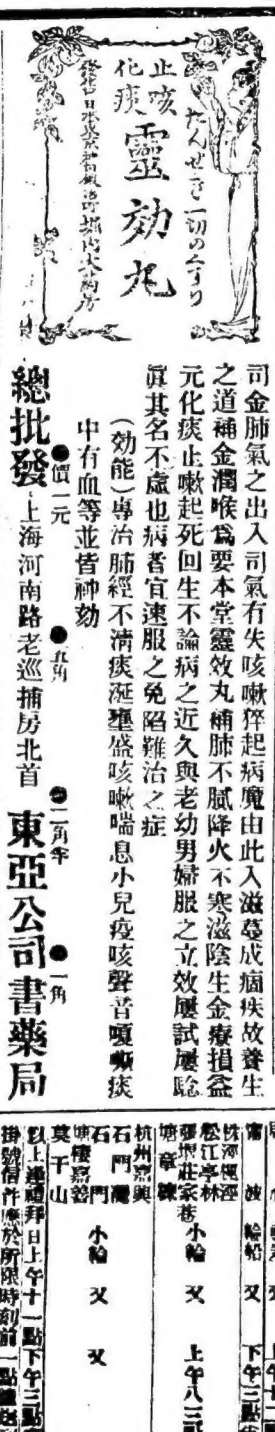 止咳
化痰
靈効丸
たんせき一切の
司金肺氣之出入司氣有失咳嗽猝起病魔由此入滋蔓成痼疾故養生
之道補金潤喉爲要本堂靈效丸補肺不膩降火不寒滋陰生金療損益
元化痰止嗽起死回生不論病之近久與老幼男婦服之立效屢試屢驗
眞其名不虛也病者宜速服之免陷難治之症
(効能)專治肺經不淸痰涎壅盛咳嗽喘息小兒疫咳聲音嗄嘶痰
中有血等並皆神効
●價一元 ●五角 ●二角半 ●一角
總批發 上海河南路老巡捕房北首 東亞公司書藥局
甯波 輪船 又 下午三點
松江亭林
張堰莊家巷 小輪 又 上午八
杭州嘉興
石門灣
石門 小輪 又
塘棲嘉善
莫干山 又
以上連禮拜日上午十一點下午三點
掛號信件應於所限時刻前一點鐘